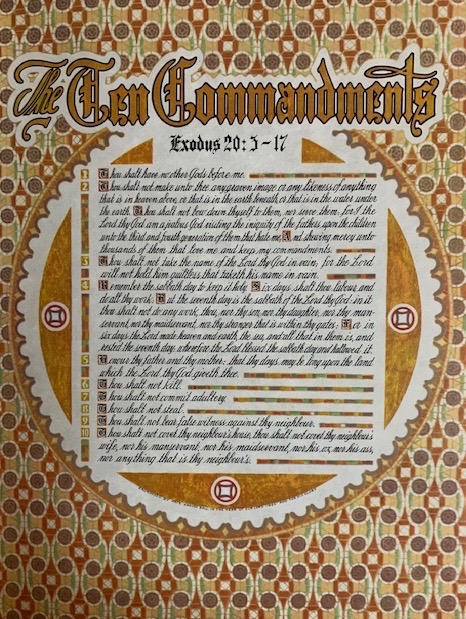 The Ten Commandments
Exodus 20: 3-17
1 Thou shalt have no other Gods before me.
2 Thou shalt not make unto thee any graven image or any likeness of anything
that is in heaven above, or that is in the earth beneath, or that is in the water under
the earth. Thou shalt not bow down thyself to them, nor serve them: for I the
Lord thy God am a jealous God, visiting the iniquity of the fathers upon the children
unto the third and fourth generation of them that hate me; And shewing mercy unto
thousands of them that love me and keep my commandments.
3 Thou shalt not take the name of the Lord thy God in vain, for the Lord
will not hold him guiltless that taketh his name in vain.
4 Remember the sabbath day to keep it holy. Six days shalt thou labour, and
do all thy work: But the seventh day is the sabbath of the Lord thy God: in it
thou shalt not do any work, thou, nor thy son, nor thy daughter, nor thy man-
servant, nor thy maidservant, nor thy stranger that is within thy gates: For in
six days the Lord made heaven and earth, the sea, and all that in them is, and
rested the seventh day: wherefore the Lord blessed the sabbath day and hallowed it.
5 Honour thy father and thy mother: that thy days may be long upon the land
which the Lord thy God giveth thee.
6 Thou shalt not kill.
7 Thou shalt not commit adultery.
8 Thou shalt not steal.
9 Thou shalt not bear false witness against thy neighbour.
10 Thou shalt not covet thy neighbour's house, thou shalt not covet thy neighbour's
wife, nor his manservant, nor his maidservant, nor his ox, nor his ass,
nor anything that is thy neighbour's.